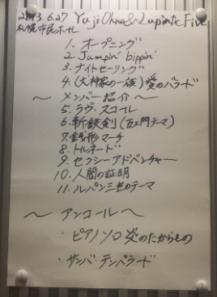 2013.6.27 Yuji Ohno & Lupintic Five
札幌市民ホール
1. オープニング
2. Jumpin' bippin'
3. ナイトセーリング
4. (犬神家の一族) 愛のバラード
～ メンバー紹介 ～
5. ラヴ・スコール
6. 斬鉄剣 (五ェ門テーマ)
7. 銭形マーチ
8. トルネード
9. セクシーアドベンチャー
10. 人間の証明
11. ルパン三世のテーマ
～ アンコール ～
・ピアノソロ 炎のたからもの
・サンバ・テンパラード